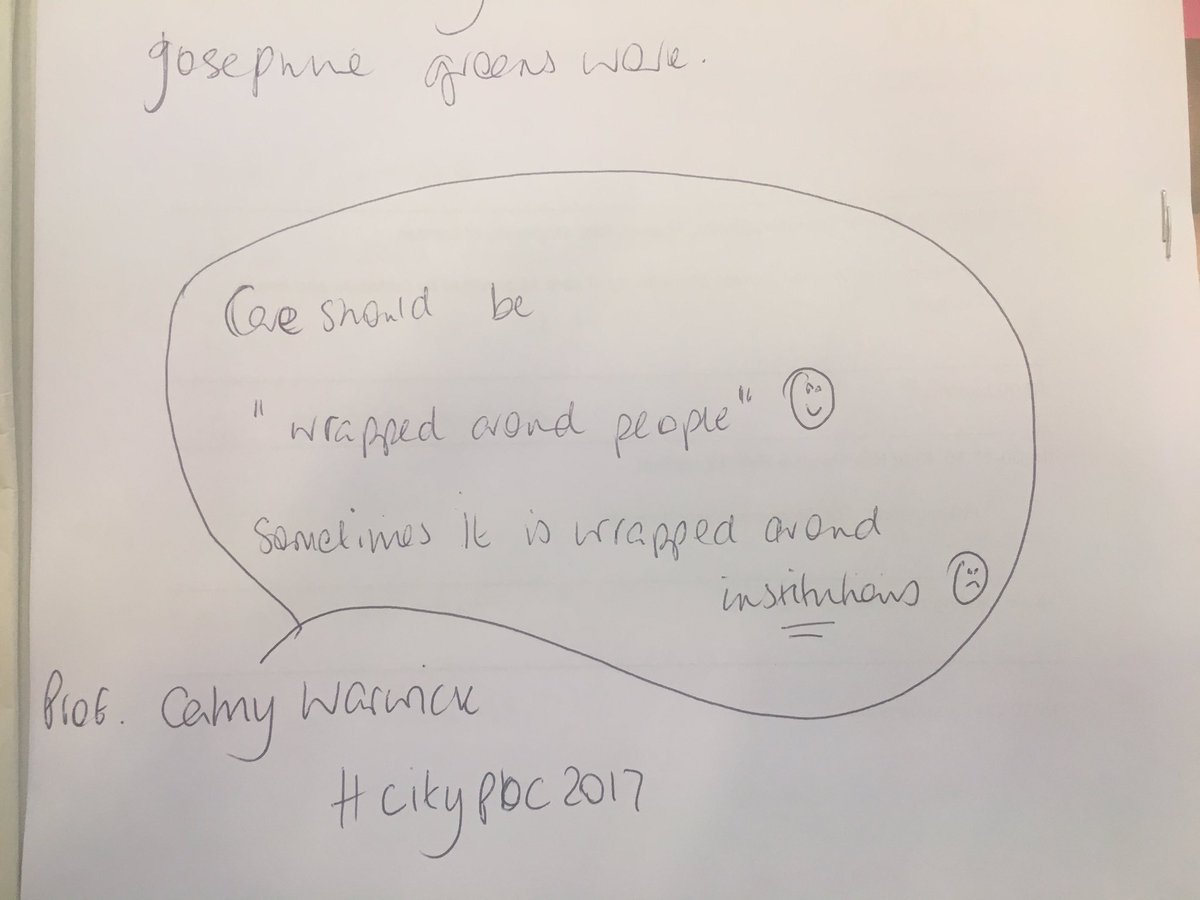 Josephine greens work.
Care should be
"wrapped around people"
Sometimes it is wrapped around
institutions
Prof. Cathy Warwick
#citypbc2017